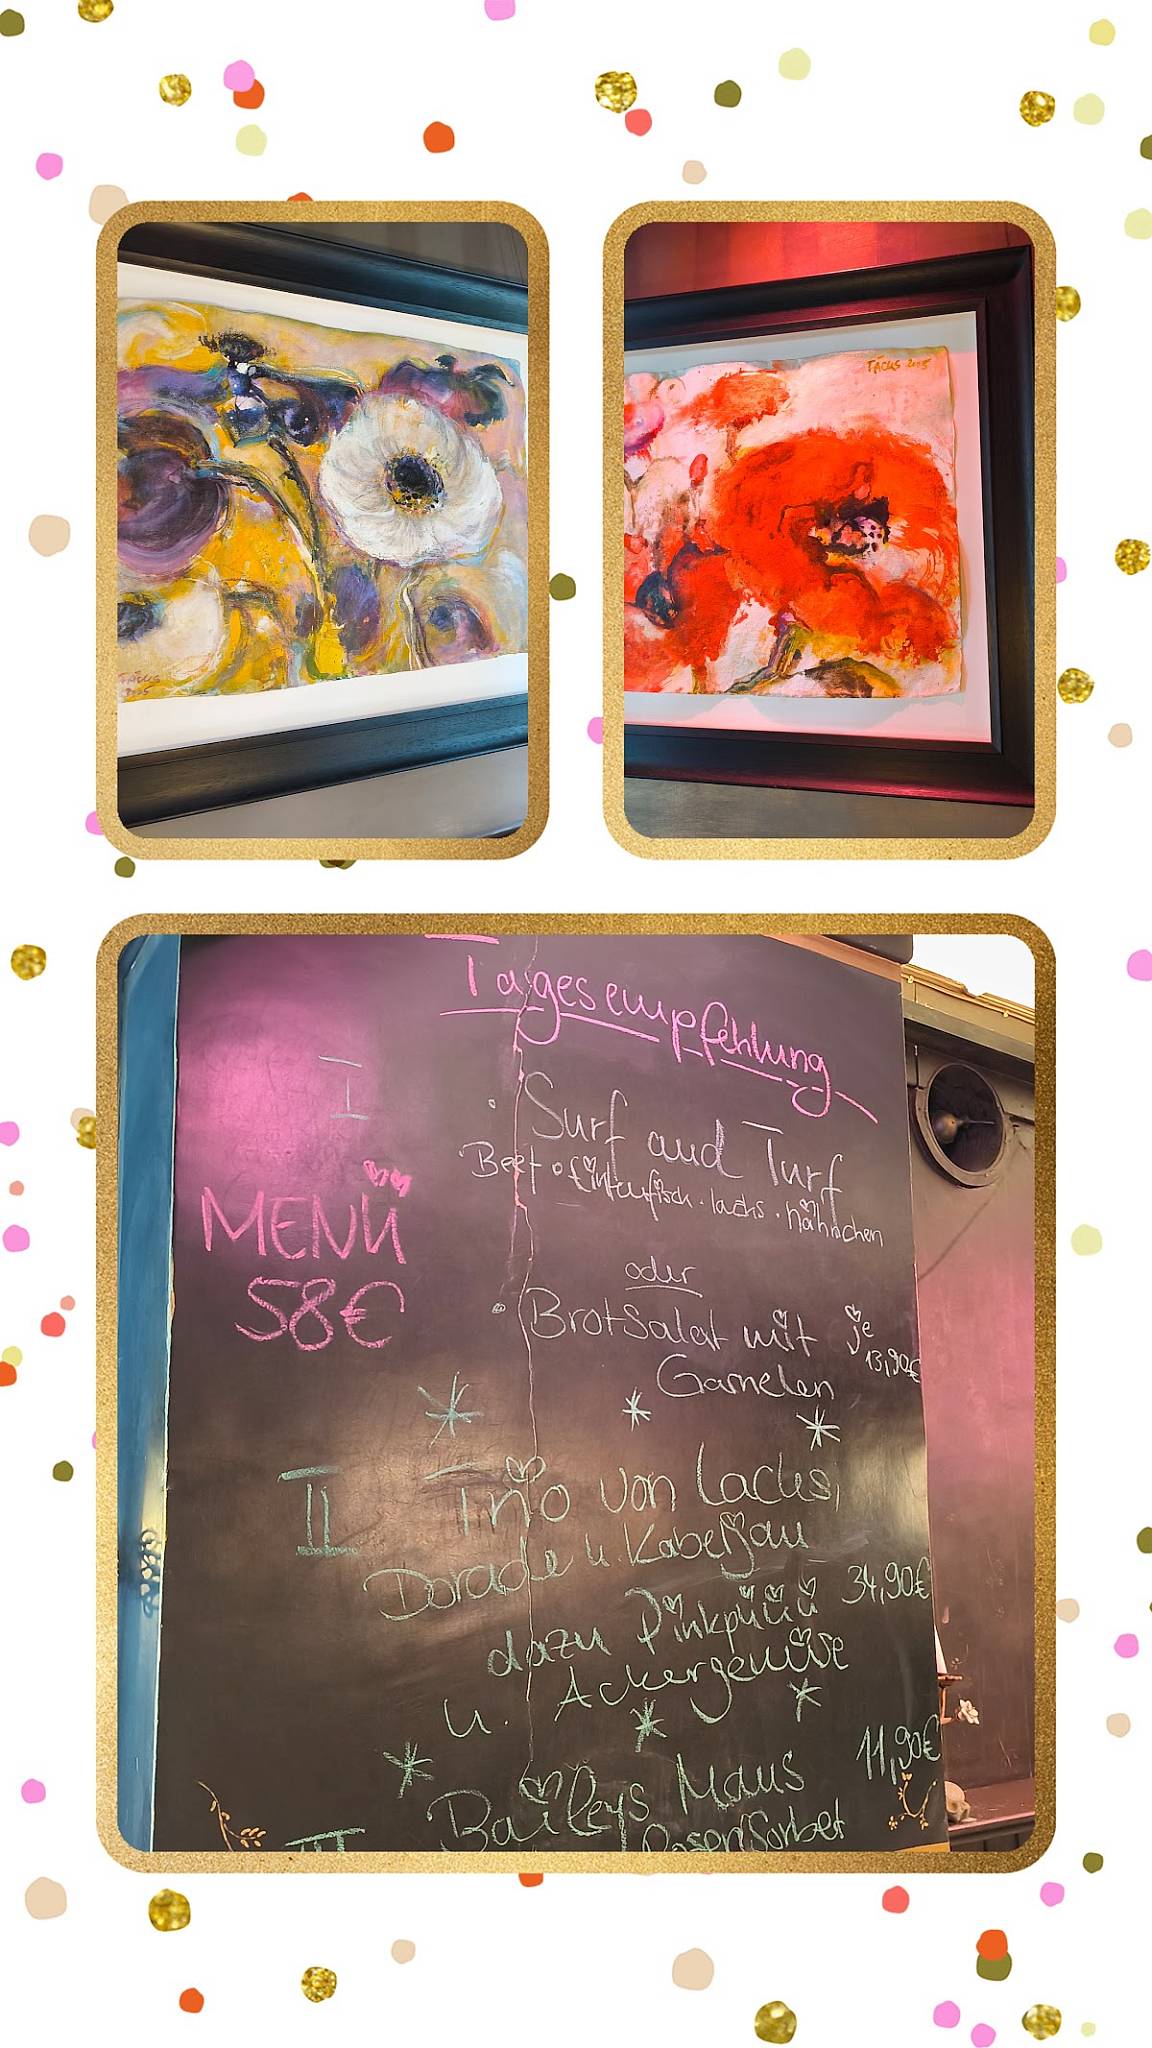 TÁCUS
2005
TÁCUS 2005
Tagesempfehlung
I
MENÜ
58€
· Surf and Turf
Beef · Tintenfisch · Lachs · Hähnchen
oder
· Brotsalat mit
Garnelen
je
13,90€
II
Trio von Lachs,
Dorade u. Kabeljau
dazu Pinkpüüü
34,90€
u. Ackergemüse
11,90€
III
Baileys Maus
Rosensorbet